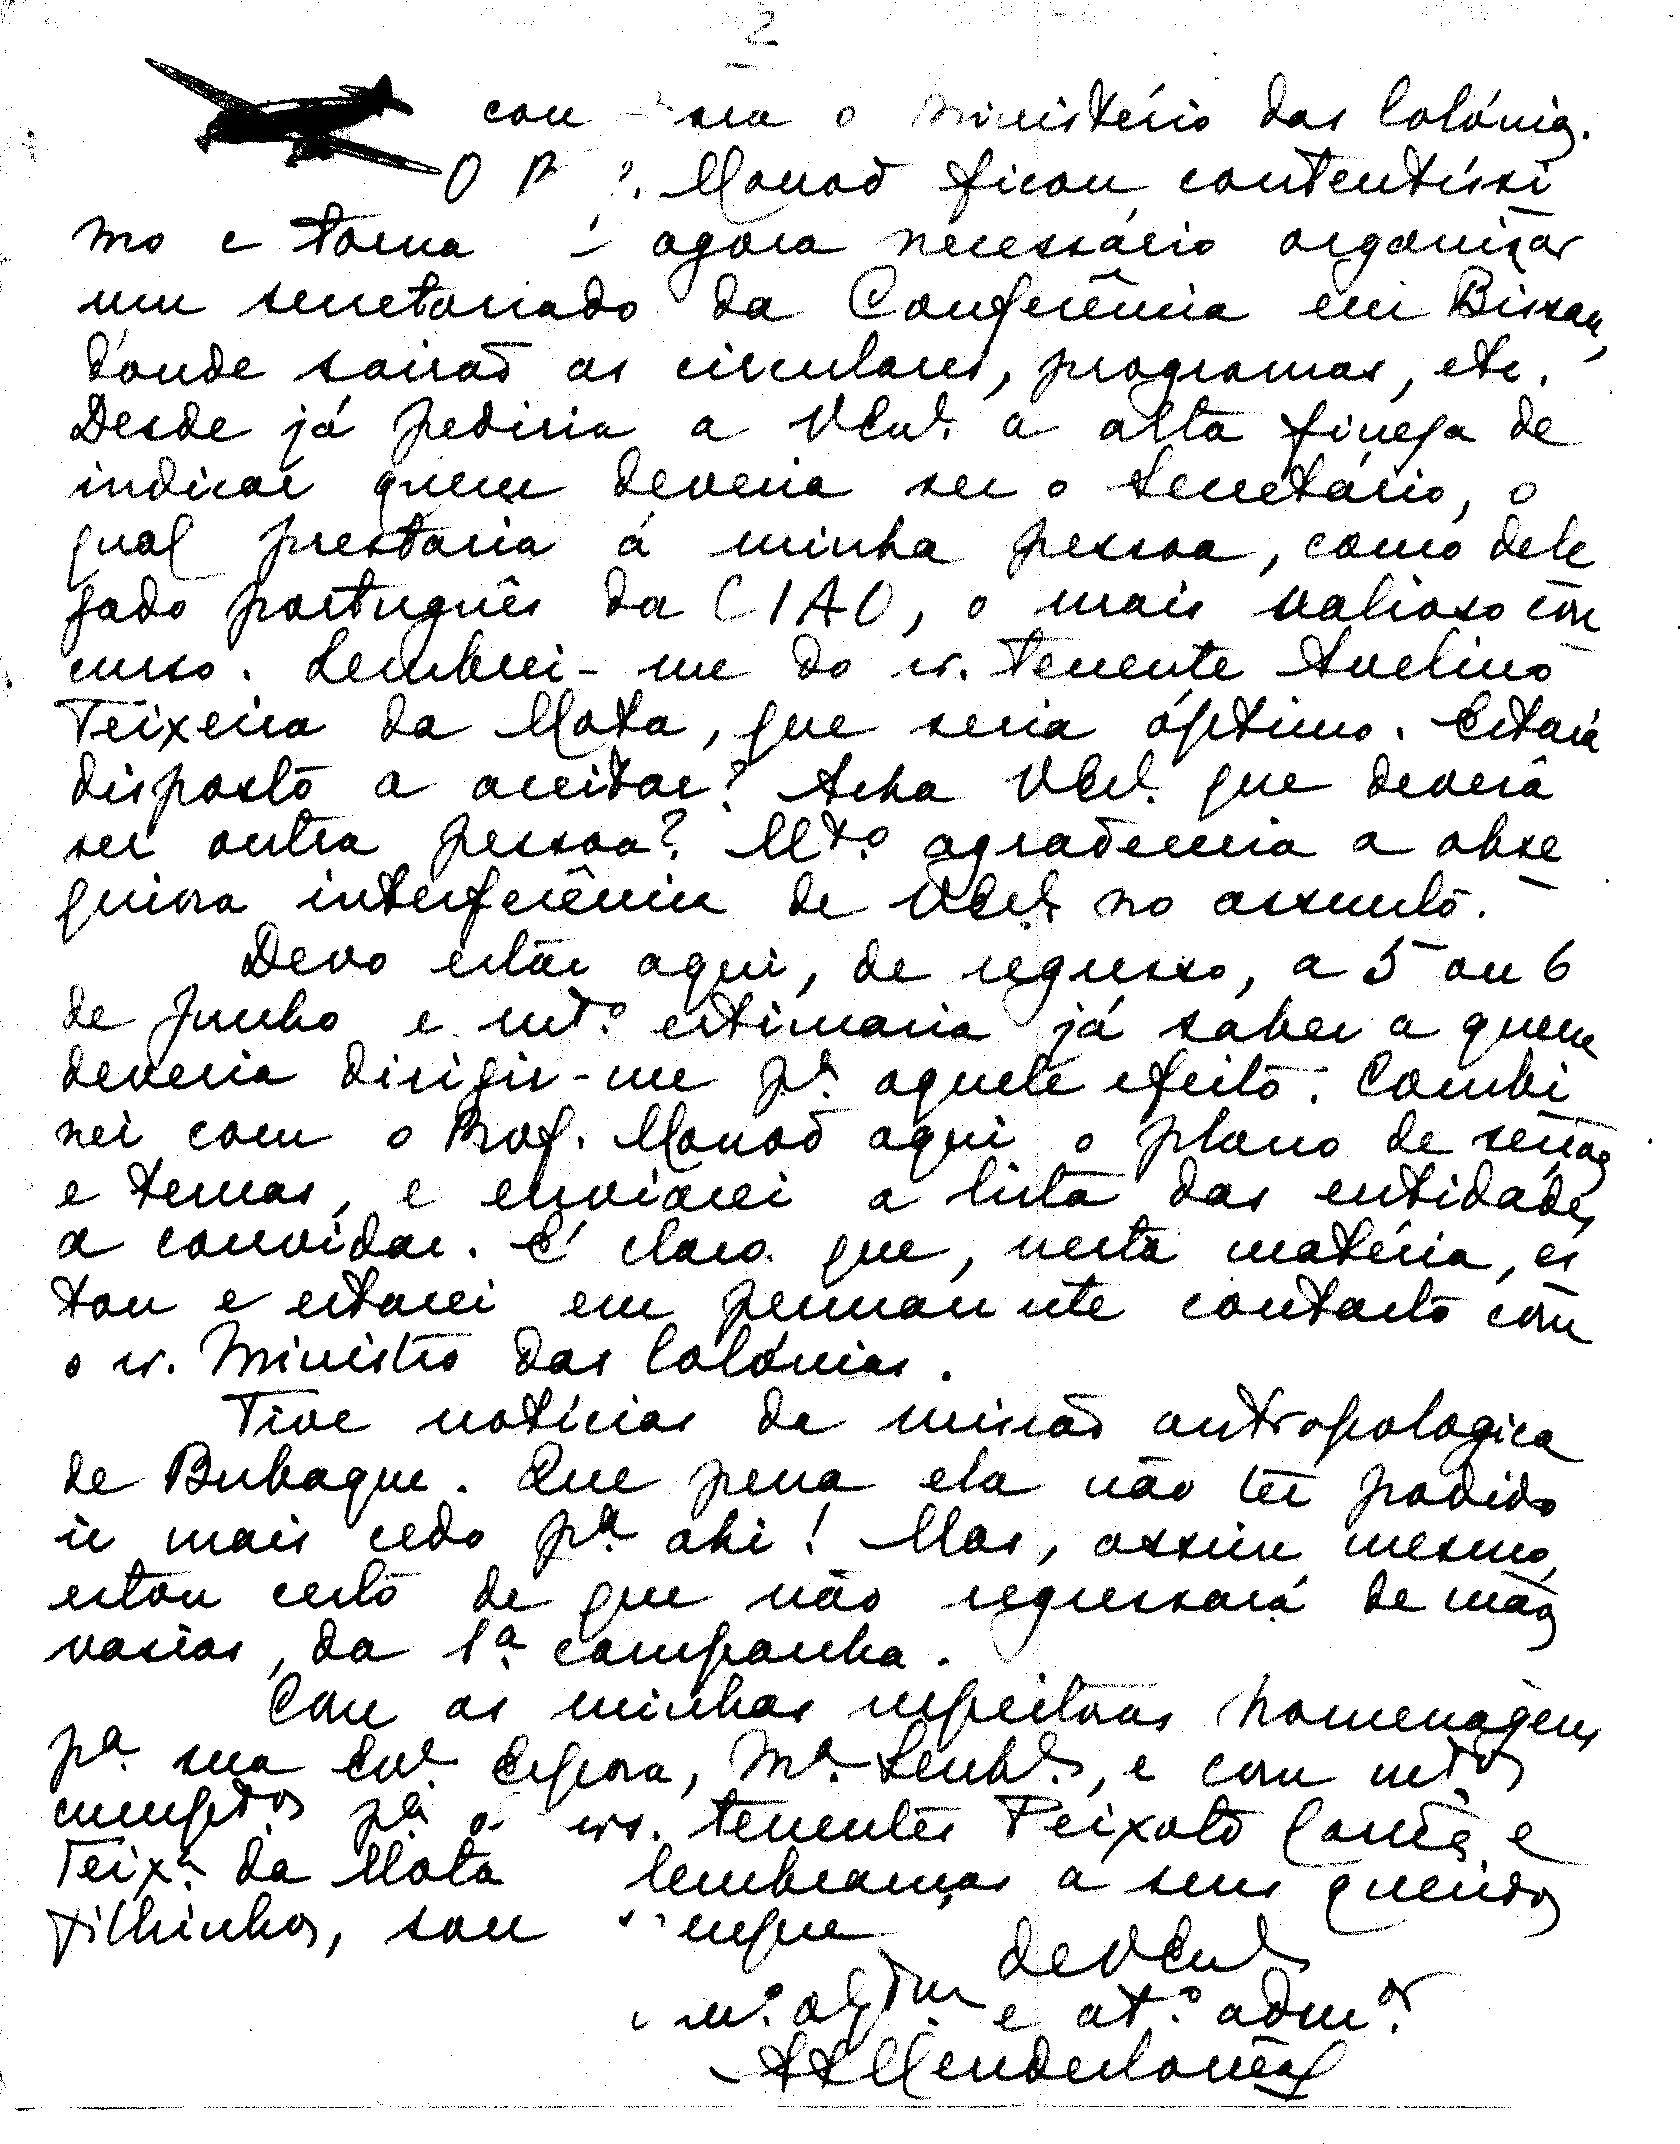 2
com o Ministério das Colónias.
O Monod ficou contentíssi
mo e torna agora necessário organizar
um secretariado da Conferência em Bissau,
d'onde sairão as circulares, programas, etc.
Desde já pediria a V Exª. a alta fineza de
indicar quem deveria ser o Secretário, o
qual prestaria á minha pessoa, como dele
gado português da CIAO, o mais valioso con
curso. Lembrei-me do sr. tenente Avelino
Teixeira da Mota, que seria óptimo. Estará
disposto a aceitar? Acha V Exª. que deverá
ser outra pessoa? Mtº. agradeceria a obse
quiosa interferência de V Exª. no assunto.
Devo estar aqui, de regresso, a 5 ou 6
de Junho e mtº. estimaria já saber a quem
deveria dirigir-me pª. aquele efeito. Combi
nei com o Prof. Monod aqui o plano de secções
e temas, e enviarei a lista das entidades
a convidar. É claro que, nesta matéria, es
tou e estarei em permanente contacto com
o sr. Ministro das Colónias.
Tive notícias da missão antropologica
de Bubaque. Que pena ela não ter podido
ir mais cedo pª. ahi! Mas, assim mesmo,
estou certo de que não regressará de mãos
vasias, da 1ª. campanha.
Com as minhas respeitosas homenagens
pª. sua Exª. Esposa, Mª. Senhª., e com mtºs
cumptºs pª. os srs. tenentes Peixoto Correia e
Teixª. da Mota lembranças a seus queridos
filhinhos, sou sempre
de V Exª
e atº. admºr.
A A Mendes Corrêa